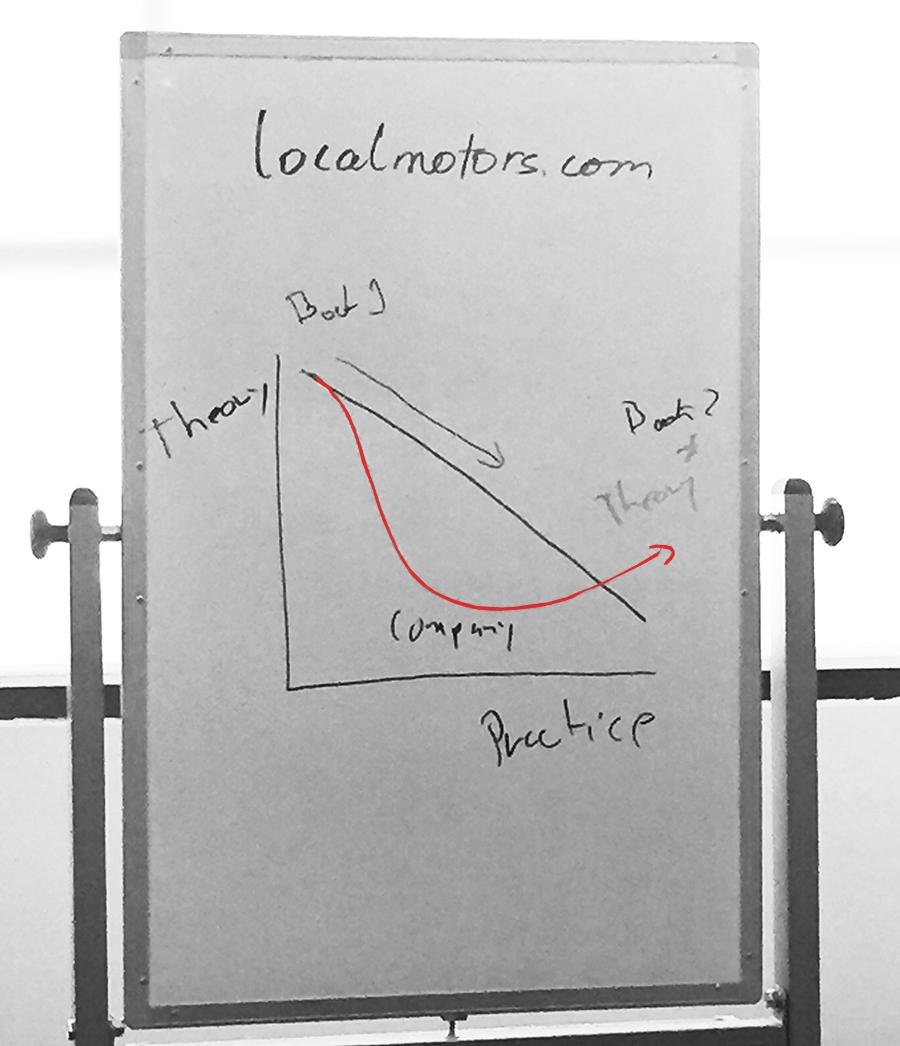 localmotors.com
Book 1
Theory
Book 2
*
Theory
Company
Practice